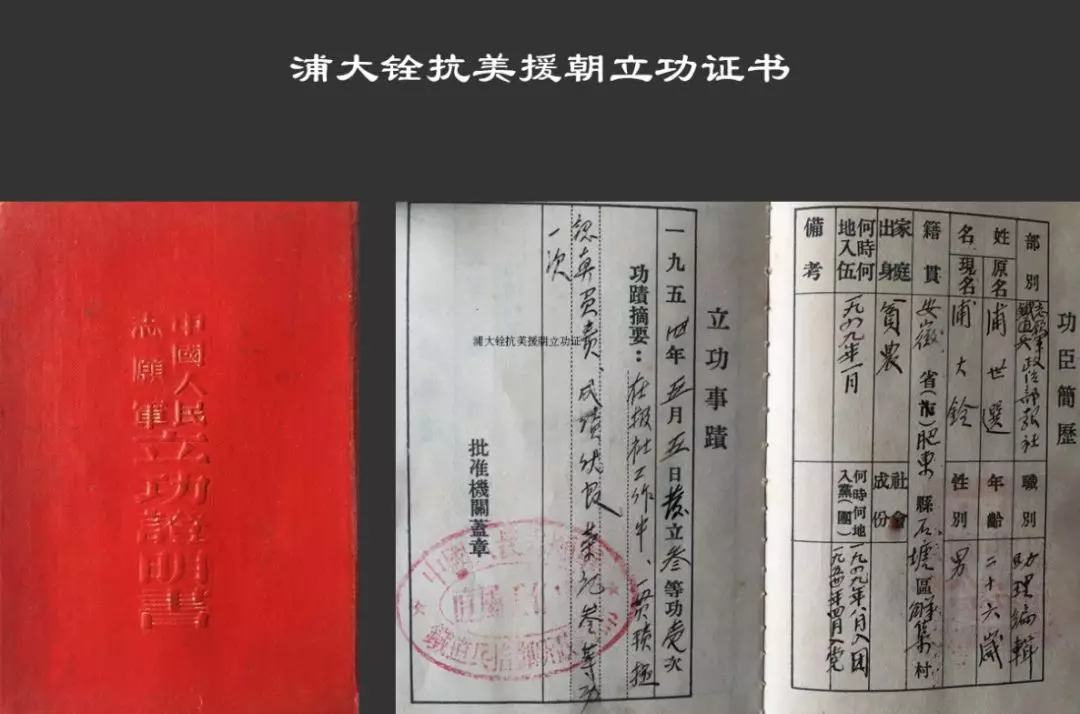 浦大铨抗美援朝立功证书
中國人民
志願軍
立功證明書
功臣簡歷
部別 志願軍鐵道兵政治部報社 職別 助理編輯
姓名 原名 浦世選 年齡 二十六歲
現名 浦大銓 性別 男
籍貫 安徽省(市)肥東縣石塘區 集村
家庭出身 貧農 社會成份
何時何地入伍 一九四九年一月 何時何地入黨(團) 一九四九年八月入团
一九五四年四月入党
備考
立功事蹟
一九五四年五月五日 立叁等功壹次
功蹟摘要：在报社工作中、一贯積極
認真負責、成績优良 記叁等功
一次
浦大铨抗美援朝立功证
批准機關蓋章